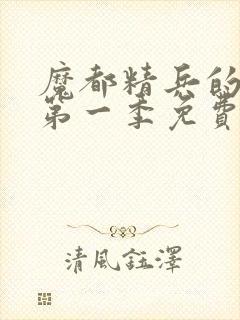 魔都精兵的
第一季免費
清風鈺澤